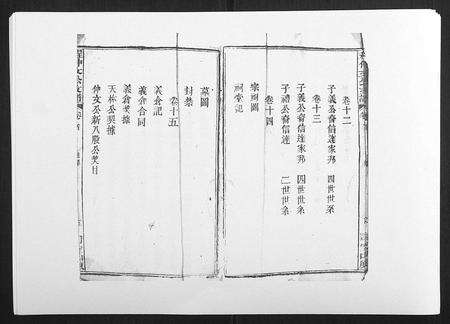 卷十二
子義公裔信達家邦 四世世系
卷十三
子義公裔信達家邦 四世世系
子禮公裔信達 二世世系
卷十四
家祠圖
祠堂記
墓圖
封禁
卷十五
義倉記
義倉合同
義倉契據
天林公契據
仲文公新八股公契目